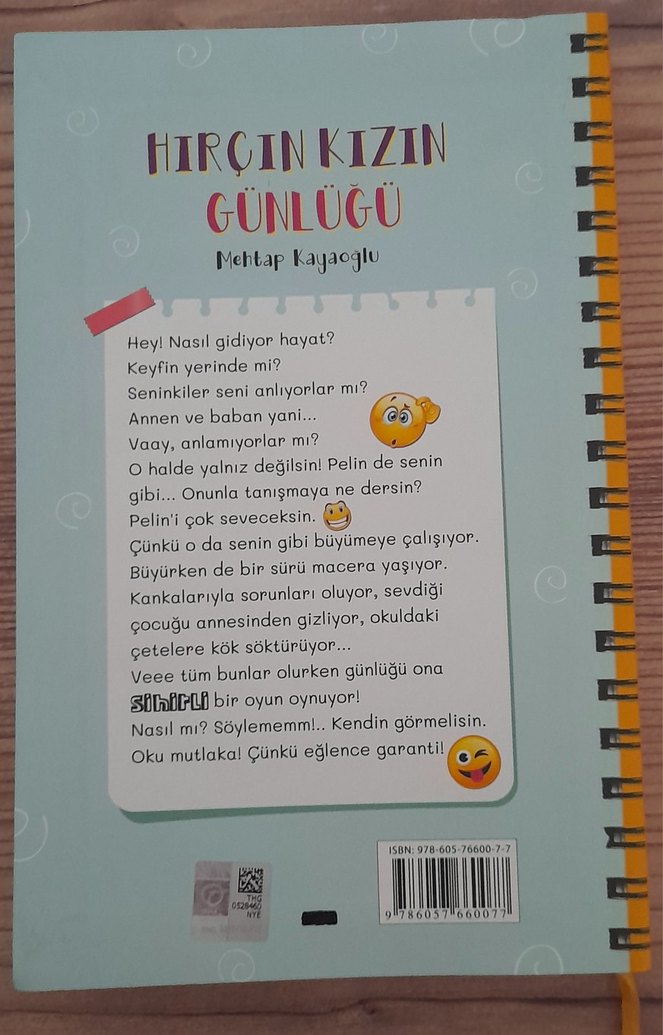 HIRÇIN KIZIN
GÜNLÜĞÜ
Mehtap Kayaoğlu
Hey! Nasıl gidiyor hayat?
Keyfin yerinde mi?
Seninkiler seni anlıyorlar mı?
Annen ve baban yani...
Vaay, anlamıyorlar mı?
O halde yalnız değilsin! Pelin de senin
gibi... Onunla tanışmaya ne dersin?
Pelin'i çok seveceksin.
Çünkü o da senin gibi büyümeye çalışıyor.
Büyürken de bir sürü macera yaşıyor.
Kankalarıyla sorunları oluyor, sevdiği
çocuğu annesinden gizliyor, okuldaki
çetelere kök söktürüyor...
Veee tüm bunlar olurken günlüğü ona
sihirli bir oyun oynuyor!
Nasıl mı? Söylememm!.. Kendin görmelisin.
Oku mutlaka! Çünkü eğlence garanti!
ISBN: 978-605-76600-7-7
9 786057 660077
THG
0528460
NYE